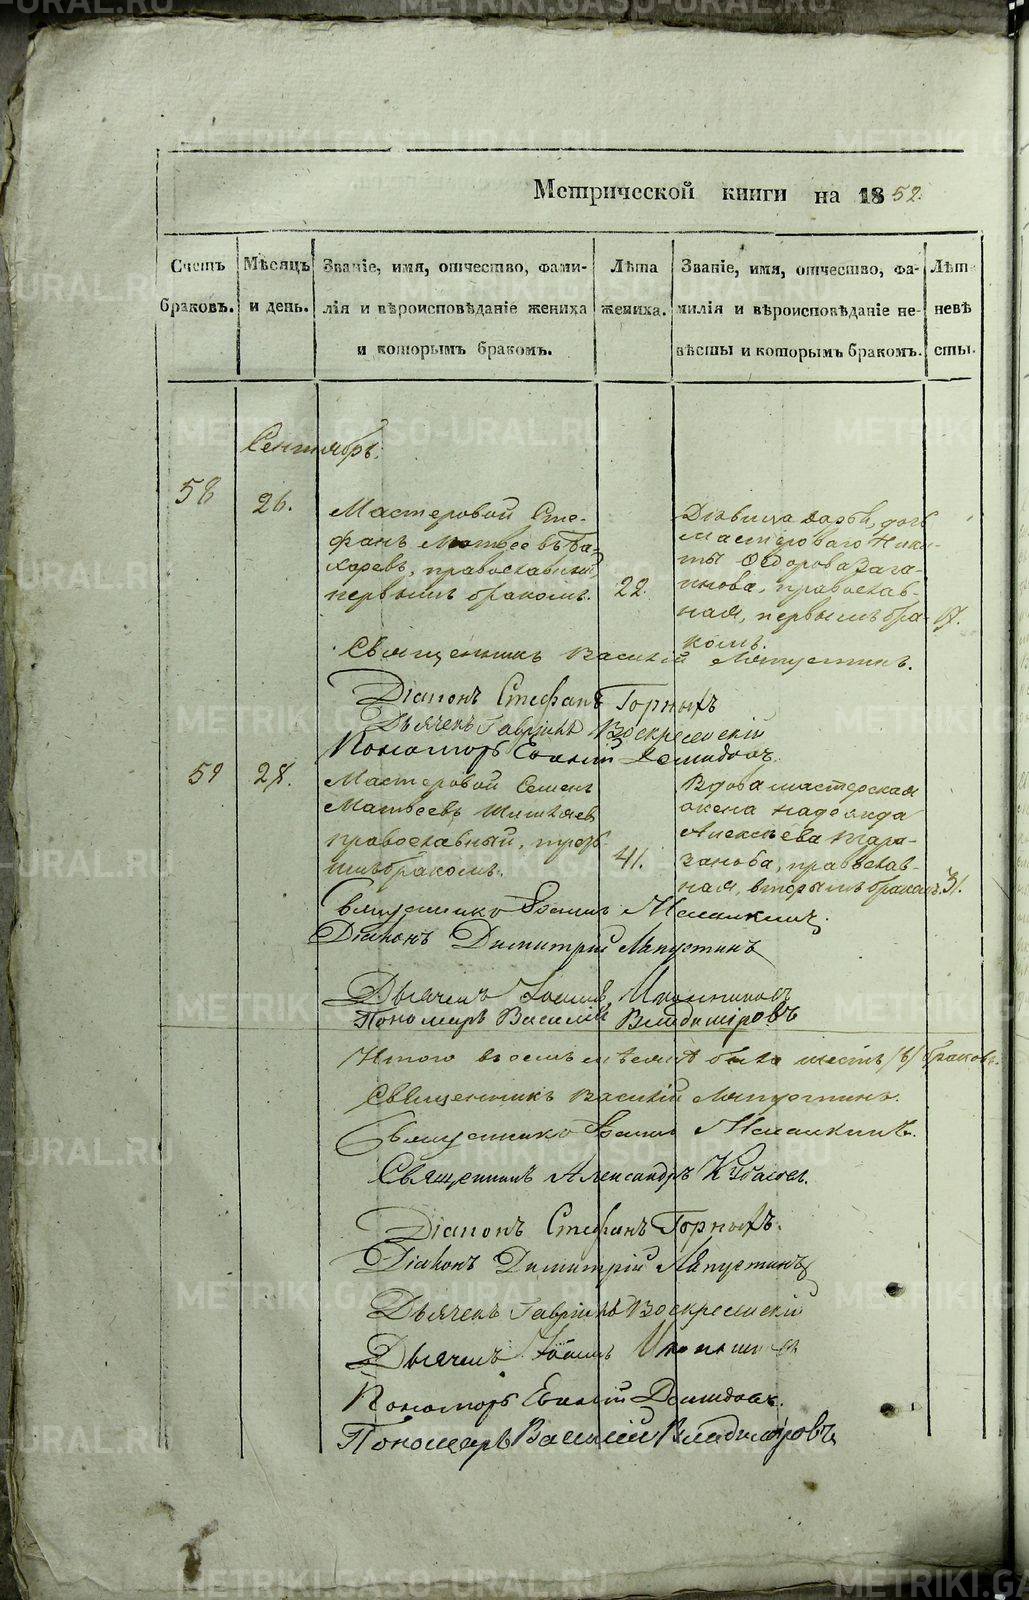 Метрической книги на 1852.
Счетъ браковъ.
Мѣсяцъ и день.
Званіе, имя, отчество, фами-
лія и вѣроисповѣданіе жениха
и которымъ бракомъ.
Лѣта жениха.
Званіе, имя, отчество, фа-
милія и вѣроисповѣданіе не-
вѣсты и которымъ бракомъ.
Лѣт
невѣ
сты.
Сентябрь.
58
26.
Мастеровой Сте-
фанъ Матвеевъ
харевъ, православный,
первымъ бракомъ.
22.
Дѣвица дочь
мастероваго Ники-
ты Ѳедорова Зага-
инова, православ-
ная, первымъ бра-
комъ.
17.
Священникъ Василій Ляпустинъ.
Діаконъ Стефанъ Горныхъ
Дьячекъ Гавріилъ Воскресенскій
Пономарь Евгеній Демидовъ.
59
28.
Мастеровой Семенъ
Матвеевъ
православный,
бракомъ.
41.
Вдова мастерская
жена Надежда
Алексѣева Тара-
канова, православ-
ная, вторымъ бракомъ.
31.
Священникъ
Діаконъ Димитрій Ляпустинъ
Дьячекъ Іоаннъ Иконниковъ
Пономарь Василій Владиміровъ
Итого въ семъ мѣсяцѣ было шесть /6/ браковъ.
Священникъ Василій Ляпустинъ.
Священникъ
Священникъ Александръ
Діаконъ Стефанъ Горныхъ.
Діаконъ Димитрій Ляпустинъ
Дьячекъ Гавріилъ Воскресенскій
Дьячекъ Іоаннъ Иконниковъ
Пономарь Евгеній Демидовъ.
Пономарь Василій Владиміровъ
METRIKI.GASO-URAL.RU